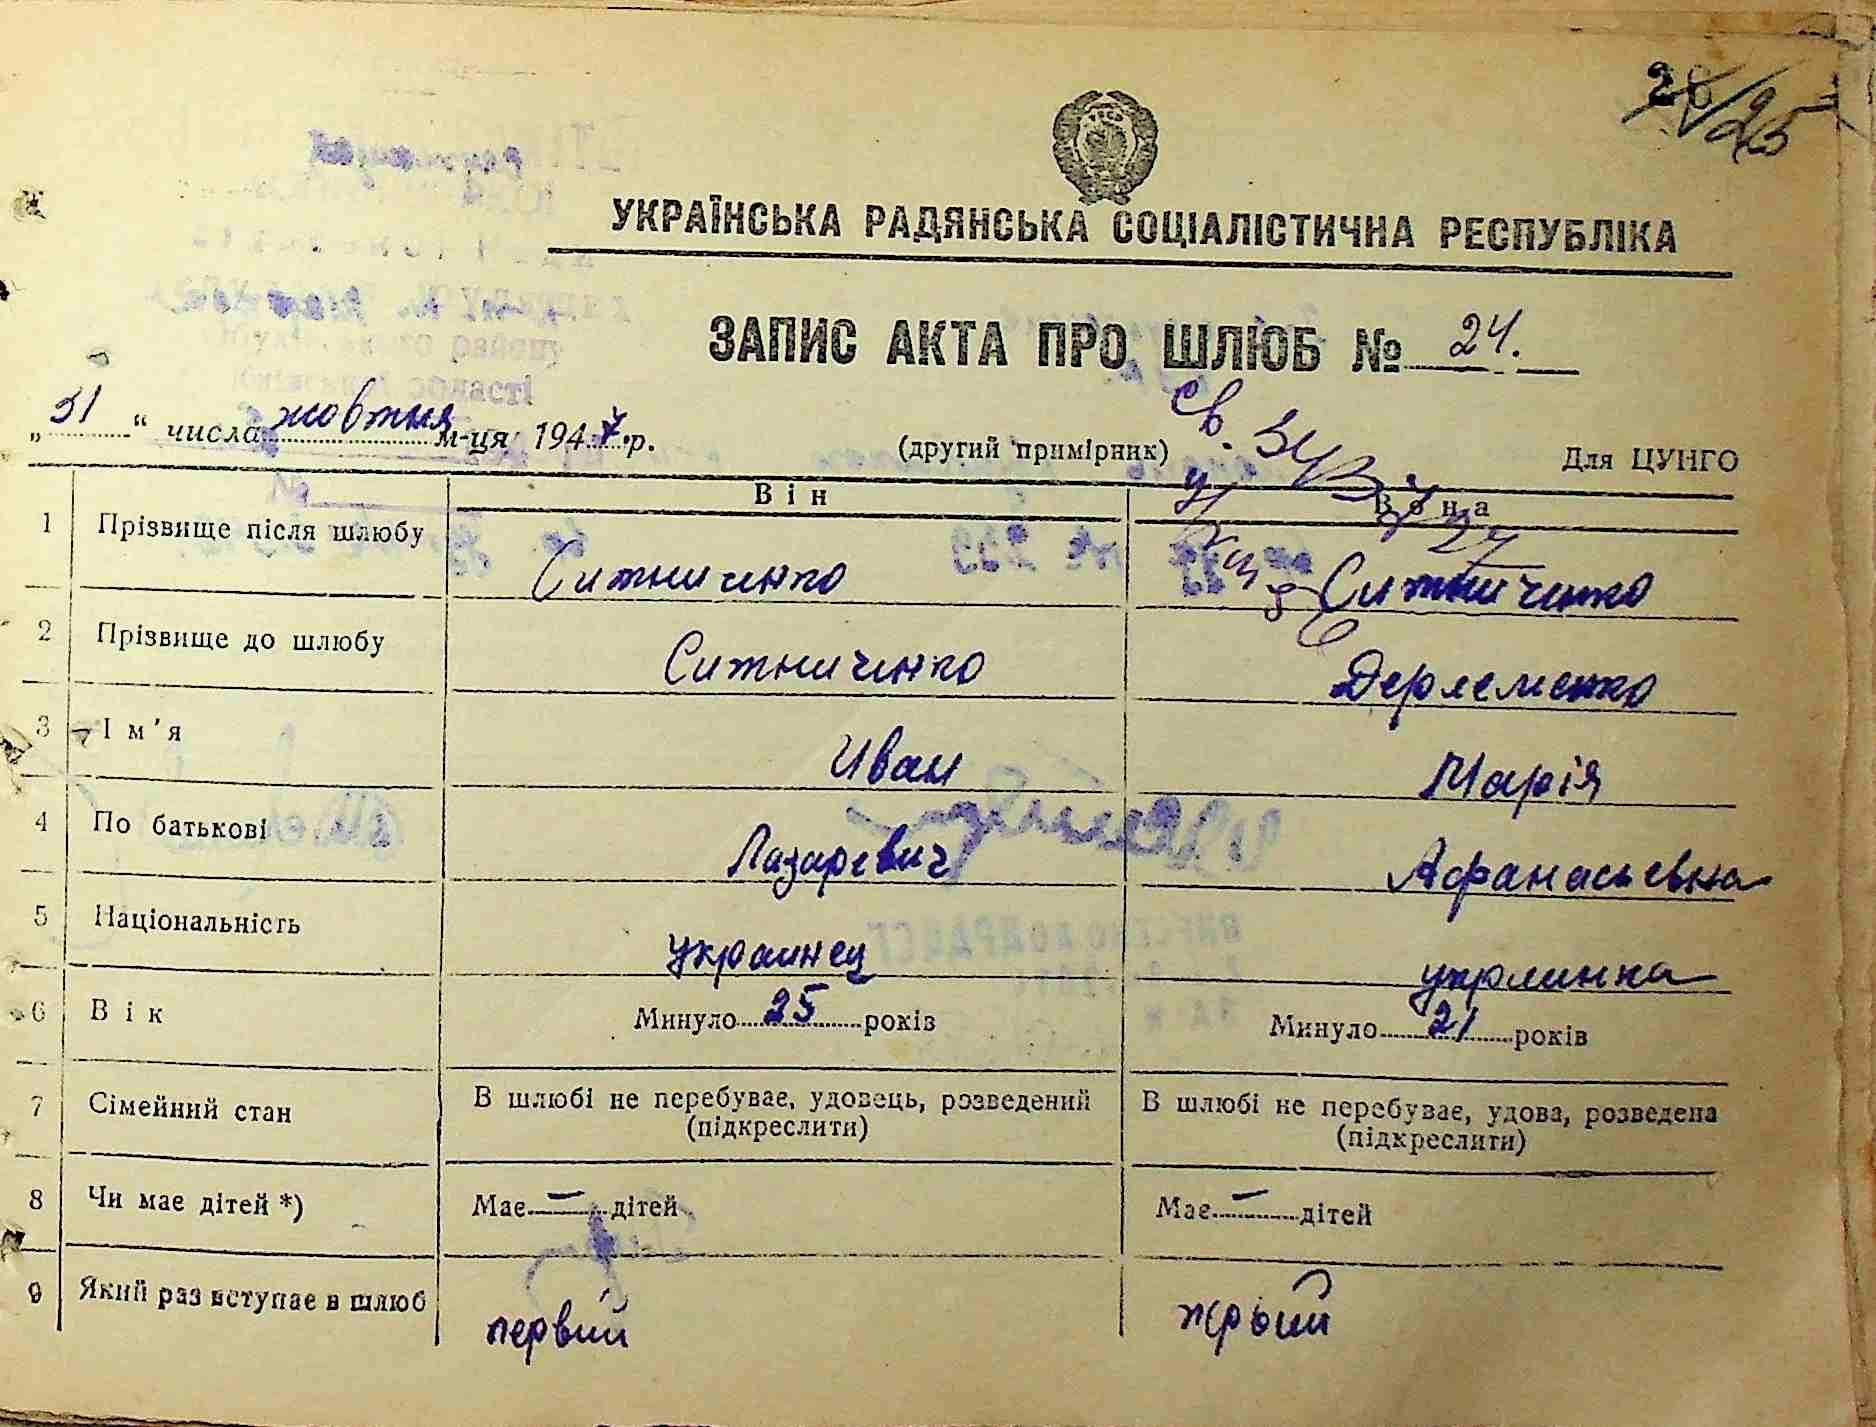 25
УКРАЇНСЬКА РАДЯНСЬКА СОЦІАЛІСТИЧНА РЕСПУБЛІКА
ЗАПИС АКТА ПРО ШЛЮБ № 24.
„31“ числа жовтня м-ця 1947 р. (другий примірник) Для ЦУНГО
Він Вона
1 Прізвище після шлюбу Ситниченко Ситниченко
2 Прізвище до шлюбу Ситниченко
3 Ім'я Иван Марія
4 По батькові Лазаревич Афанасьевна
5 Національність украинец
6 Вік Минуло 25 років Минуло 21 років
7 Сімейний стан В шлюбі не перебуває, удовець, розведений В шлюбі не перебуває, удова, розведена
(підкреслити) (підкреслити)
8 Чи має дітей *) Має — дітей Має — дітей
9 Який раз вступає в шлюб первий